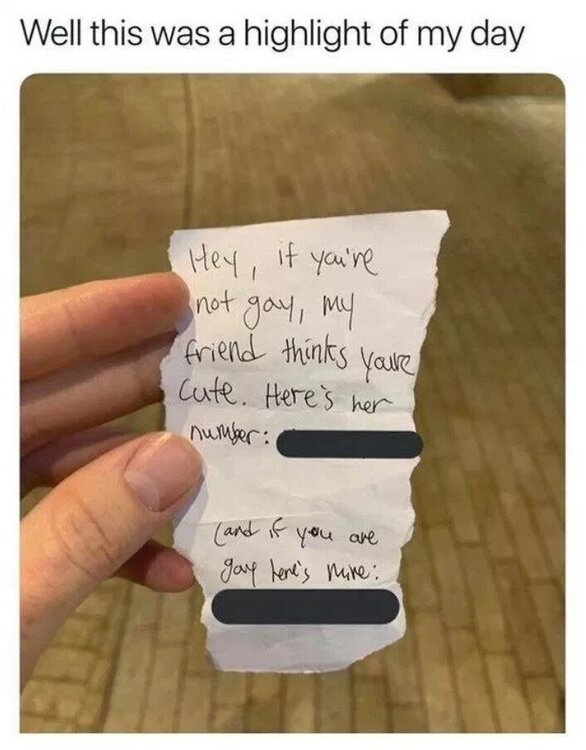 Well this was a highlight of my day
Hey, if you're
not gay, my
friend thinks you're
cute. Here's her
number:
(and if you are
gay here's mine: